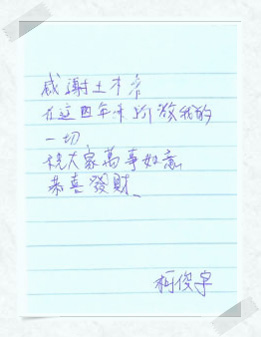 感謝土木系
在這四年來所教我的
一切
祝大家萬事如意
恭喜發財
柯俊宇